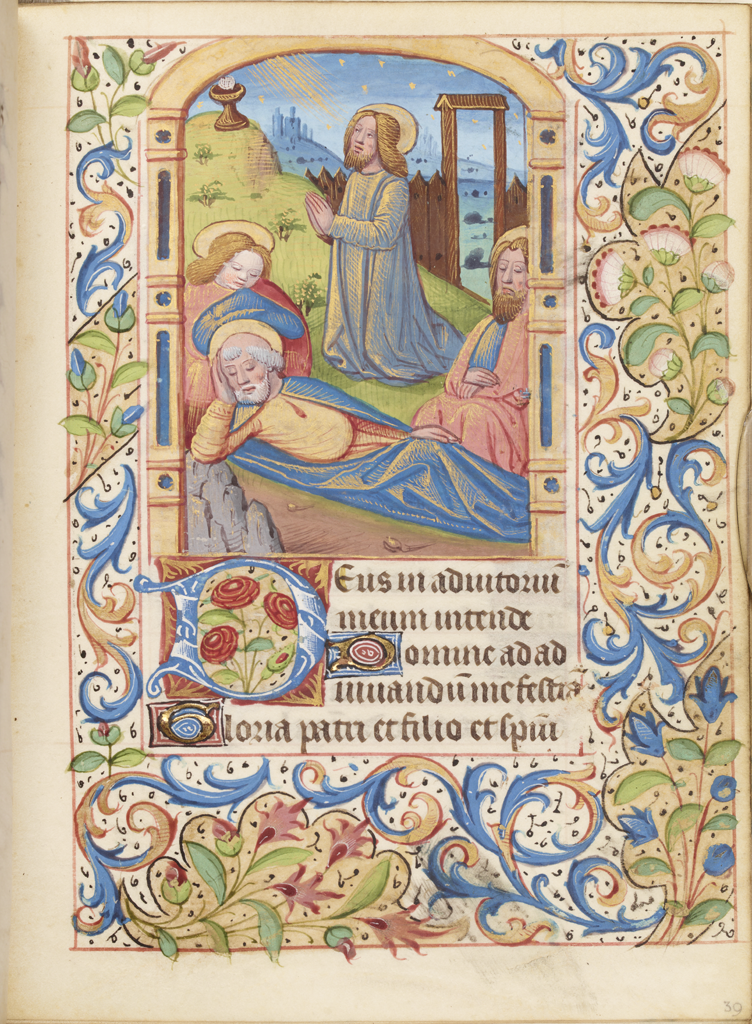 Deus in adiutoriū
meum intende
Domine ad ad
iuuandū me festi
Gloria patri et filio et spiū
39